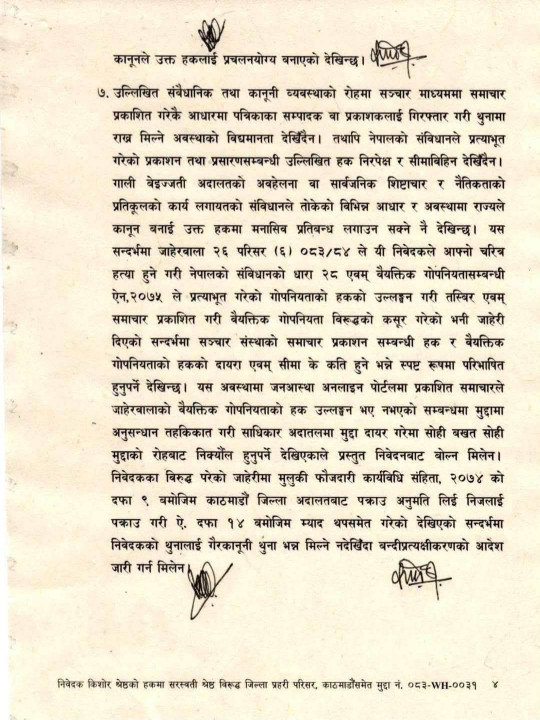 कानूनले उक्त हकलाई प्रचलनयोग्य बनाएको देखिन्छ।
७. उल्लिखित संवैधानिक तथा कानूनी व्यवस्थाको रोहमा सञ्चार माध्यममा समाचार
प्रकाशित गरेकै आधारमा पत्रिकाका सम्पादक वा प्रकाशकलाई गिरफ्तार गरी थुनामा
राख्न मिल्ने अवस्थाको विद्यमानता देखिँदैन। तथापि नेपालको संविधानले प्रत्याभूत
गरेको प्रकाशन तथा प्रसारणसम्बन्धी उल्लिखित हक निरपेक्ष र सीमाविहिन देखिँदैन।
गाली बेइज्जती अदालतको अवहेलना वा सार्वजनिक शिष्टाचार र नैतिकताको
प्रतिकूलको कार्य लगायतको संविधानले तोकेको विभिन्न आधार र अवस्थामा राज्यले
कानून बनाई उक्त हकमा मनासिव प्रतिबन्ध लगाउन सक्ने नै देखिन्छ। यस
सन्दर्भमा जाहेरवाला २६ परिसर (६) ०८३/८४ ले यी निवेदकले आफ्नो चरित्र
हत्या हुने गरी नेपालको संविधानको धारा २८ एवम् वैयक्तिक गोपनियतासम्बन्धी
ऐन,२०७५ ले प्रत्याभूत गरेको गोपनियताको हकको उल्लङ्घन गरी तस्विर एवम्
समाचार प्रकाशित गरी वैयक्तिक गोपनियता विरूद्धको कसूर गरेको भनी जाहेरी
दिएको सन्दर्भमा सञ्चार संस्थाको समाचार प्रकाशन सम्वन्धी हक र वैयक्तिक
गोपनियताको हकको दायरा एवम् सीमा के कति हुने भन्ने स्पष्ट रूपमा परिभाषित
हुनुपर्ने देखिन्छ। यस अवस्थामा जनआस्था अनलाइन पोर्टलमा प्रकाशित समाचारले
जाहेरवालाको वैयक्तिक गोपनियताको हक उल्लङ्घन भए नभएको सम्बन्धमा मुद्दामा
अनुसन्धान तहकिकात गरी साधिकार अदातलमा मुद्दा दायर गरेमा सोही बखत सोही
मुद्दाको रोहबाट निर्क्यौल हुनुपर्ने देखिएकाले प्रस्तुत निवेदनबाट बोल्न मिलेन।
निवेदकका विरुद्ध परेको जाहेरीमा मुलुकी फौजदारी कार्यविधि संहिता, २०७४ को
दफा ९ बमोजिम काठमाडौं जिल्ला अदालतबाट पक्राउ अनुमति लिई निजलाई
पक्राउ गरी ऐ. दफा १४ बमोजिम म्याद थपसमेत गरेको देखिएको सन्दर्भमा
निवेदकको थुनालाई गैरकानूनी थुना भन्न मिल्ने नदेखिँदा बन्दीप्रत्यक्षीकरणको आदेश
जारी गर्न मिलेन।
निवेदक किशोर श्रेष्ठको हकमा सरस्वती श्रेष्ठ विरूद्ध जिल्ला प्रहरी परिसर, काठमाडौंसमेत मुद्दा नं. ०८३-WH-००३१ ४